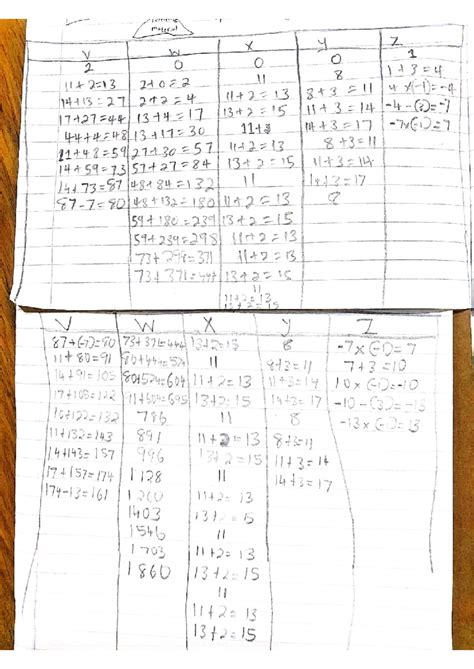 V W X Y Z
2 0 0 0 1
11+2=13 2+0=2 11 8 1+3=4
14+13=27 2+2=4 11+2=13 8+3=11 4x(-1)=-4
17+27=44 13+4=17 13+2=15 11+3=14 -4-(3)=-7
44+4=48 13+17=30 14+3=17 -7x(-1)=7
11+48=59 27+30=57 11+2=13 8+3=11
14+59=73 57+27=84 13+2=15 11+3=14
14+73=87 48+84=132 11 14+3=17
87-7=80 48+132=180 11+2=13 8
59+180=239 13+2=15
59+239=298 11+2=13
73+298=371 11+2=13
73+371=444 13+2=15
11+2=13
V W X Y Z
87+(-7)=80 73+371=444 13+2=15 8 -7x(-1)=7
11+80=91 80+444=524 11 8+3=11 7+3=10
14+91=105 80+524=604 11+2=13 11+3=14 10x(-1)=-10
17+105=122 91+604=695 13+2=15 14+3=17 -10-(3)=-13
10+122=132 786 11 8 -13x(-1)=13
11+132=143 891 11+2=13 8+3=11
14+143=157 996 13+2=15 11+3=14
17+157=174 1128 11 14+3=17
174-13=161 1260 11+2=13
1403 13+2=15
1546 11
1703 11+2=13
1860 13+2=15
11
11+2=13
13+2=15